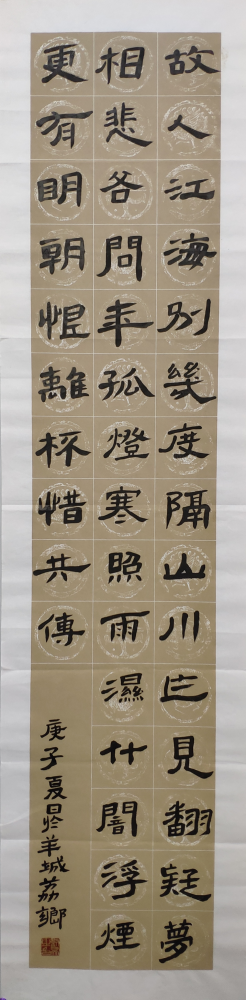 故人江海別幾度隔山川乍見翻疑夢
相悲各問年孤燈寒照雨濕竹闇浮煙
更有明朝恨離杯惜共傳
庚子夏日於羊城荔鄉